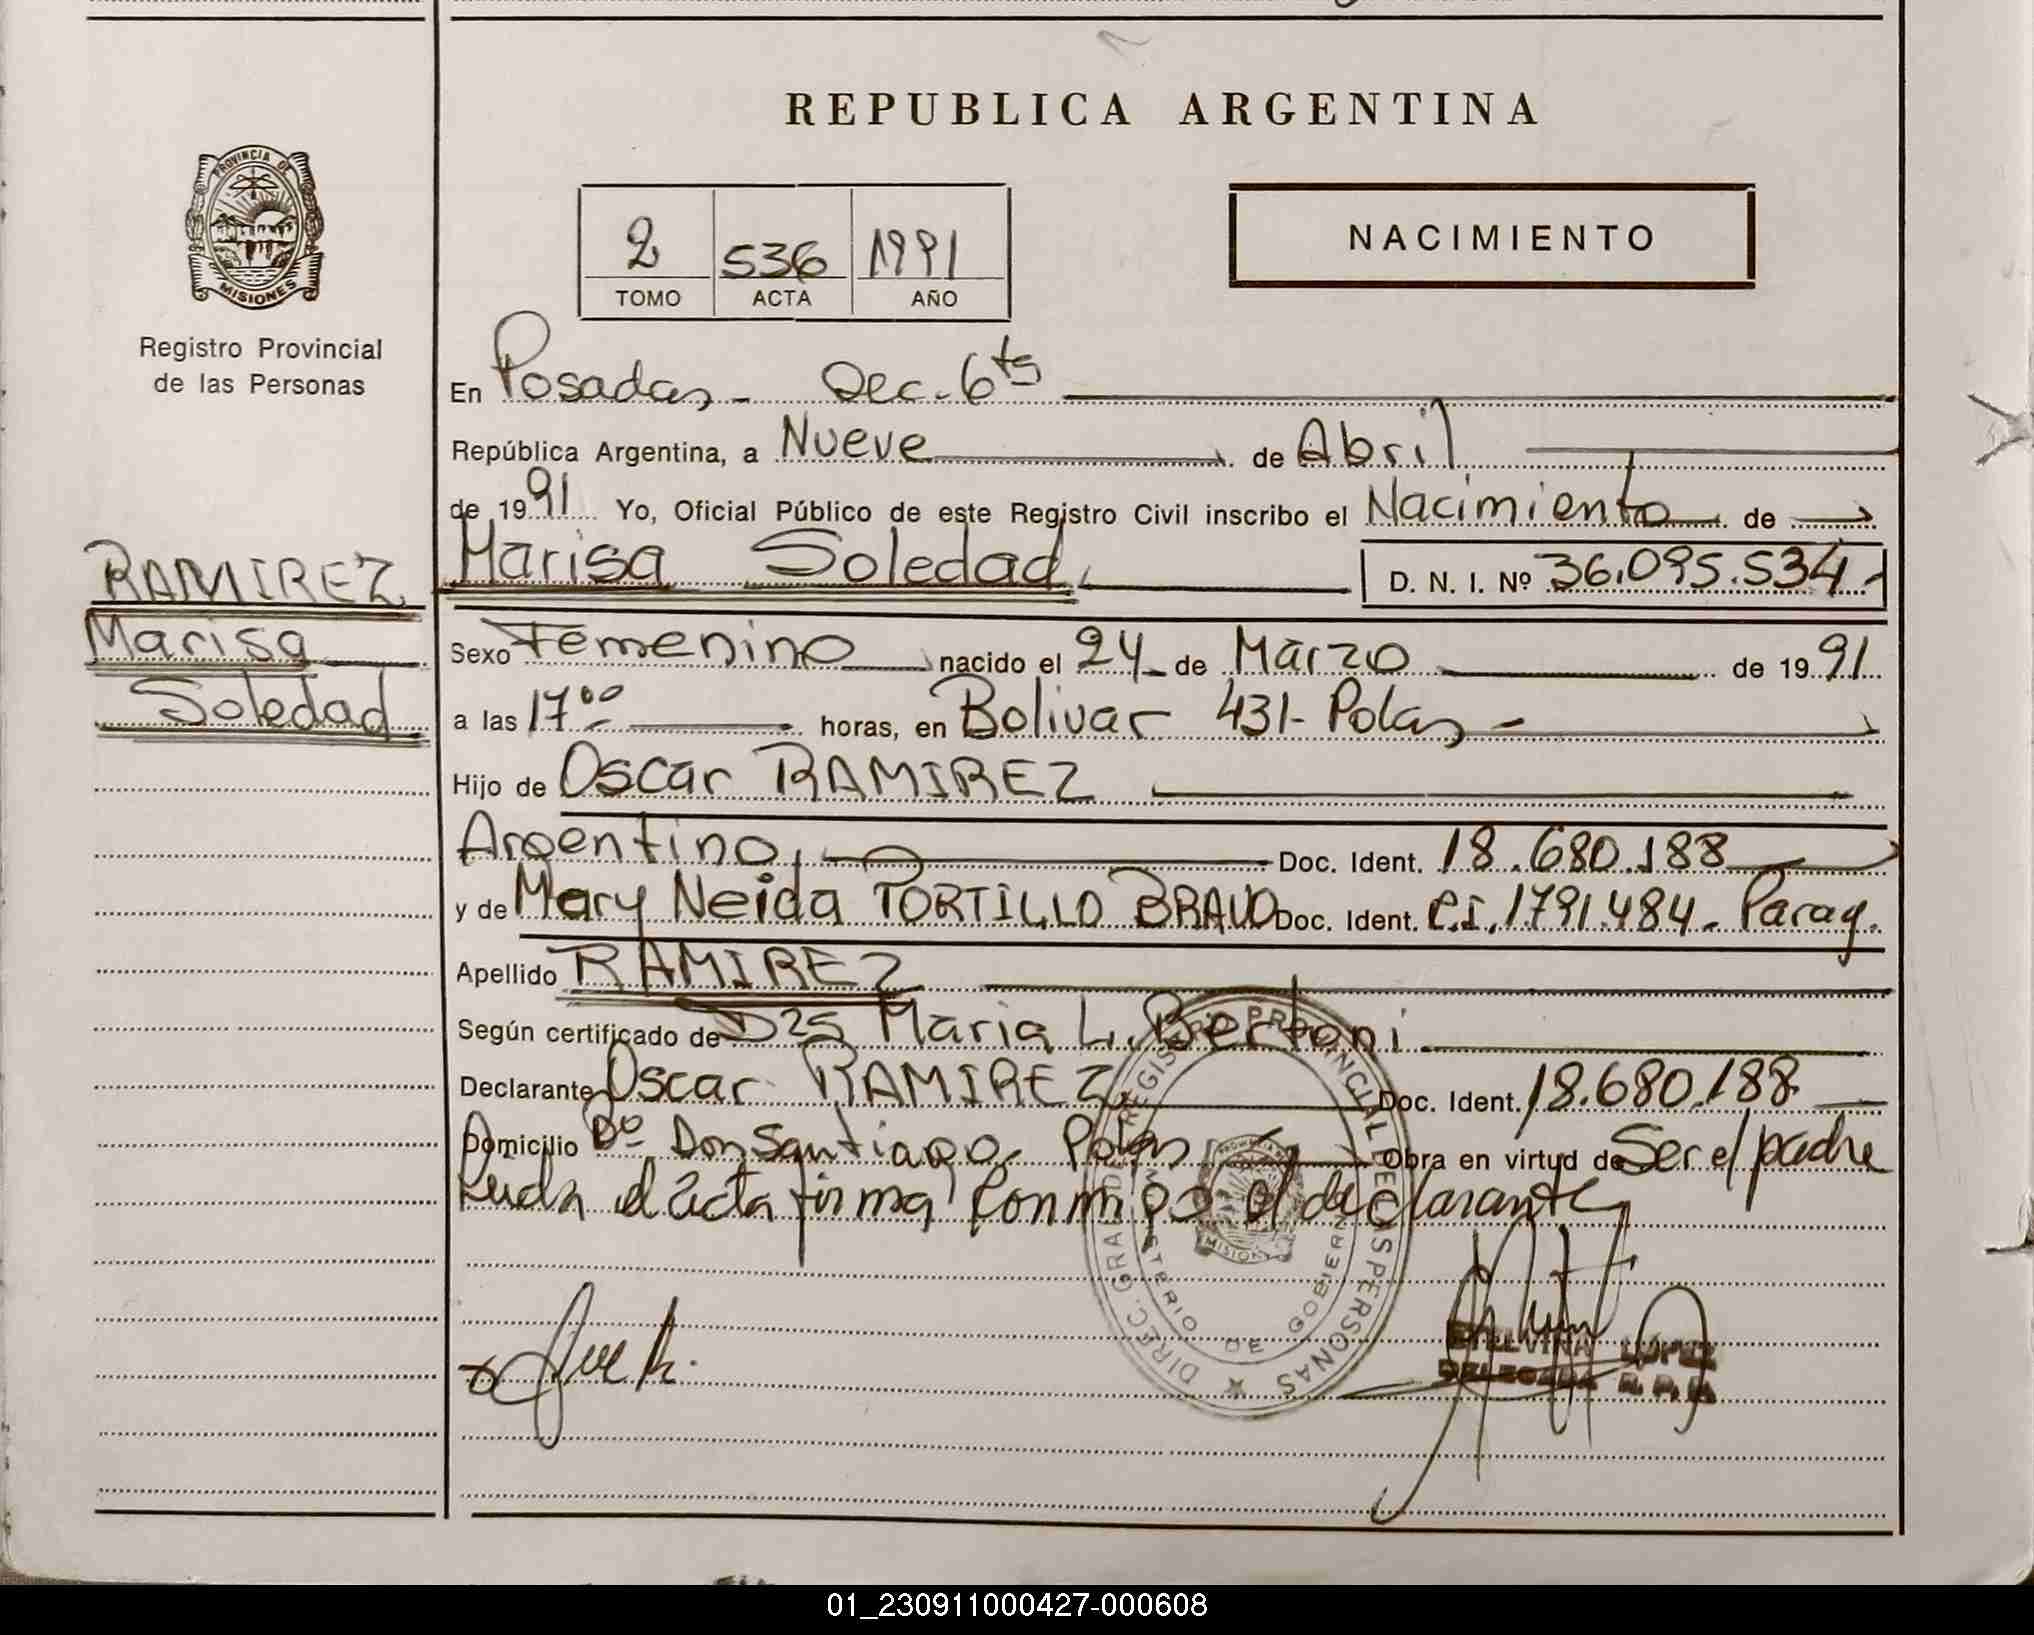 REPUBLICA ARGENTINA
PROVINCIA DE
MISIONES
Registro Provincial
de las Personas
2 536 1991
TOMO ACTA AÑO
NACIMIENTO
En Posadas - Dec. 6ta
República Argentina, a Nueve de Abril
de 1991 Yo, Oficial Público de este Registro Civil inscribo el Nacimiento de
RAMIREZ
Marisa
Soledad
Marisa Soledad D. N. I. Nº 36.095.534.-
Sexo Femenino nacido el 24 de Marzo de 1991
a las 17⁰⁰ horas, en Bolivar 431- Pdas -
Hijo de Oscar RAMIREZ
Argentino, Doc. Ident. 18.680.188
y de Mary Neida PORTILLO BRAVO Doc. Ident. C.I. 1.791.484- Parag.
Apellido RAMIREZ
Según certificado de Maria L. Bertoni
Declarante Oscar RAMIREZ Doc. Ident. 18.680.188
Domicilio Bº Don Santiago, Pdas Obra en virtud de Ser el padre
Leida el acta firma conmigo el declarante
DIREC. GRAL. DE REGISTRO PROVINCIAL DE LAS PERSONAS
MINISTERIO DE GOBIERNO
MISIONES
ETELVINA LOPEZ
DELEGADA R. P. P.
01_230911000427-000608